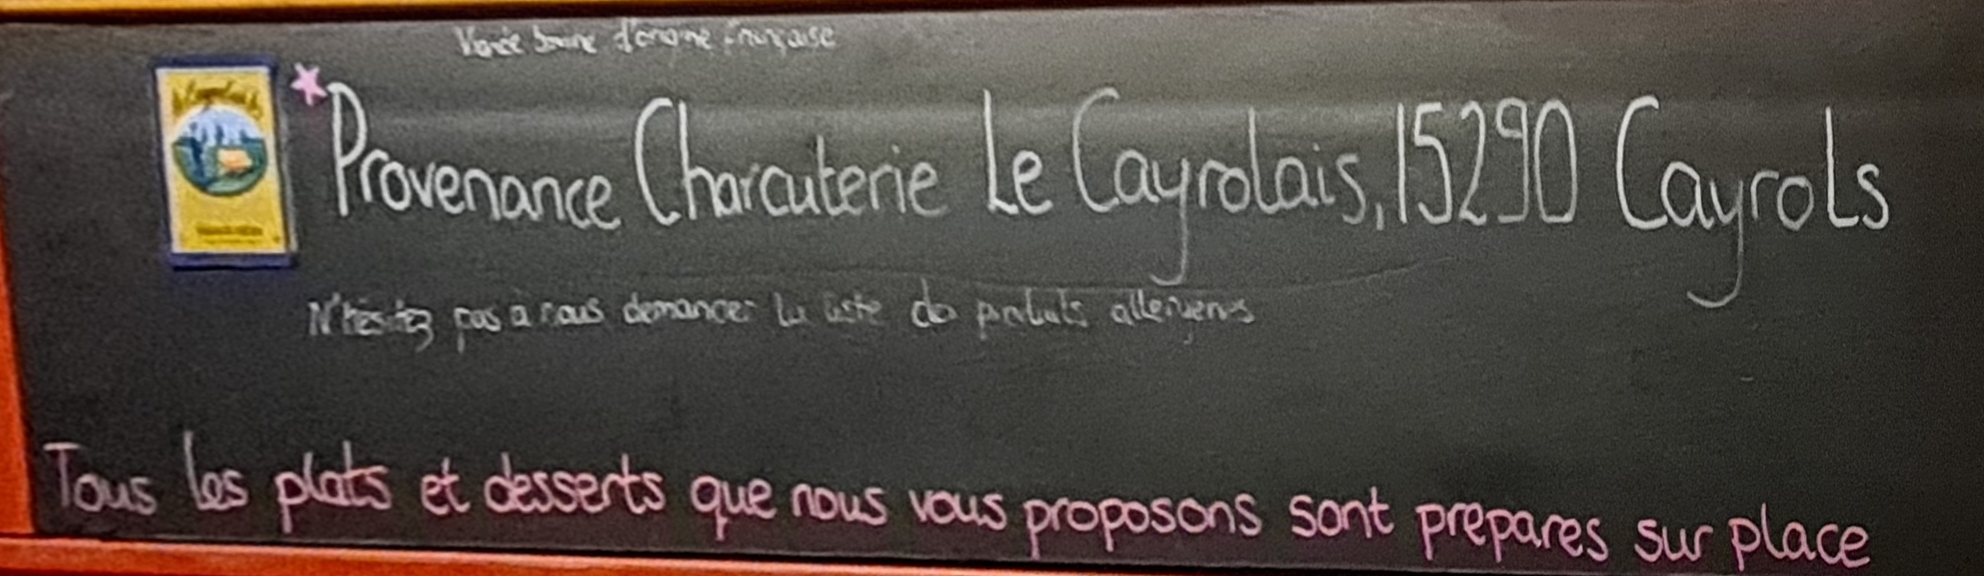 Viande bovine d'origine française
*Provenance Charcuterie Le Cayrolais, 15290 Cayrols
N'hésitez pas à nous demander la liste de produits allergènes
Tous les plats et desserts que nous vous proposons sont prepares sur place